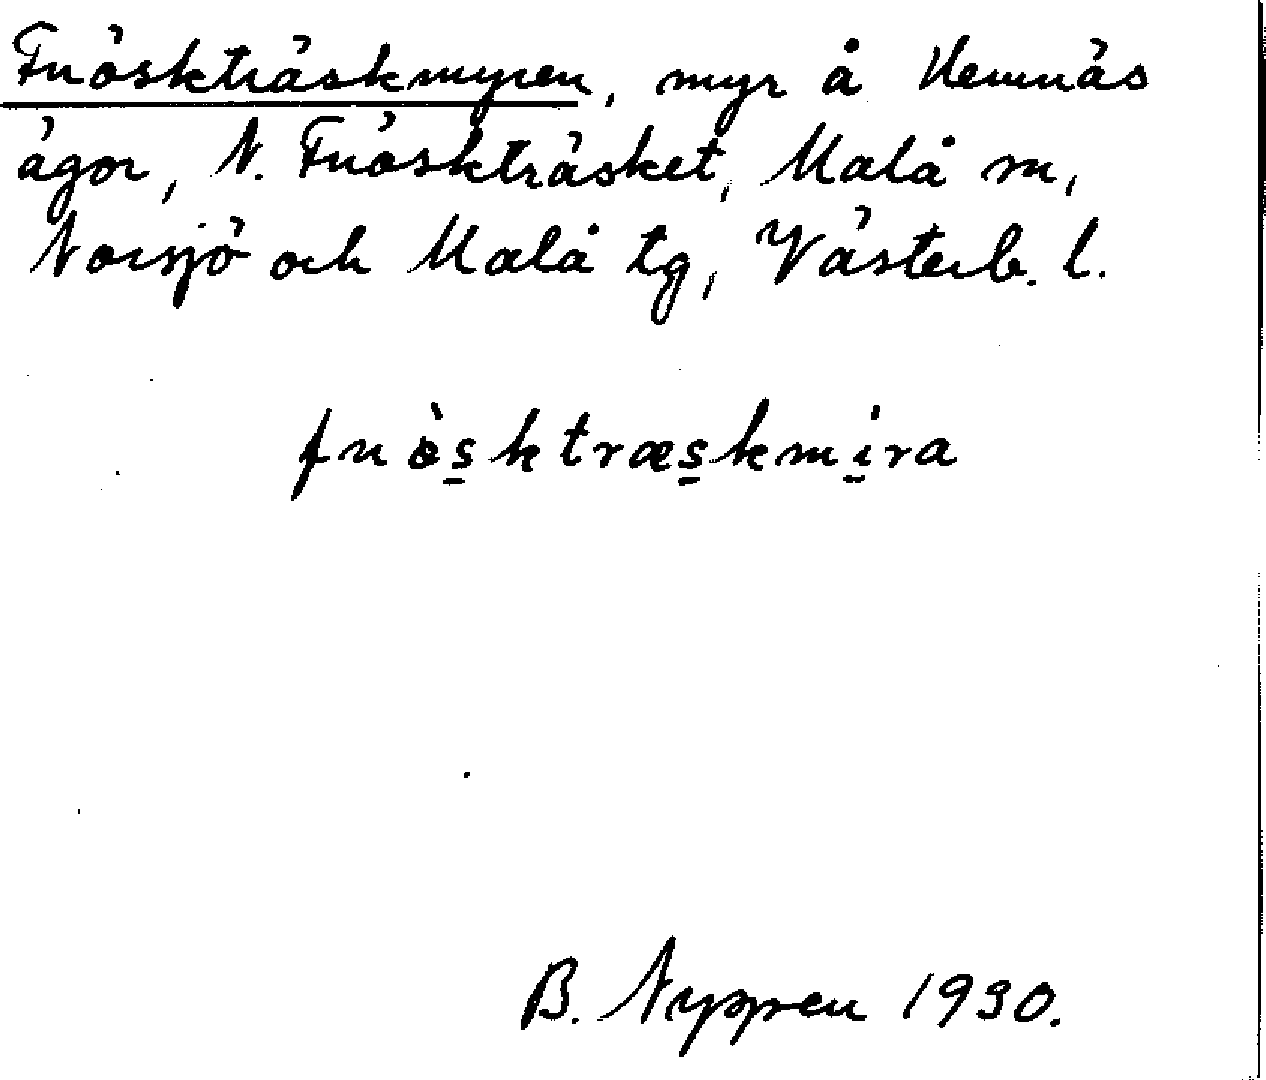 Fnöskträskmyren, myr å Hemnäs
ägor, N. Fnöskträsket, Malå sn,
Norsjö och Malå tg, Västerb. l.
fnös̱ktræs̱kmi̱ra
B. Nyppen 1930.